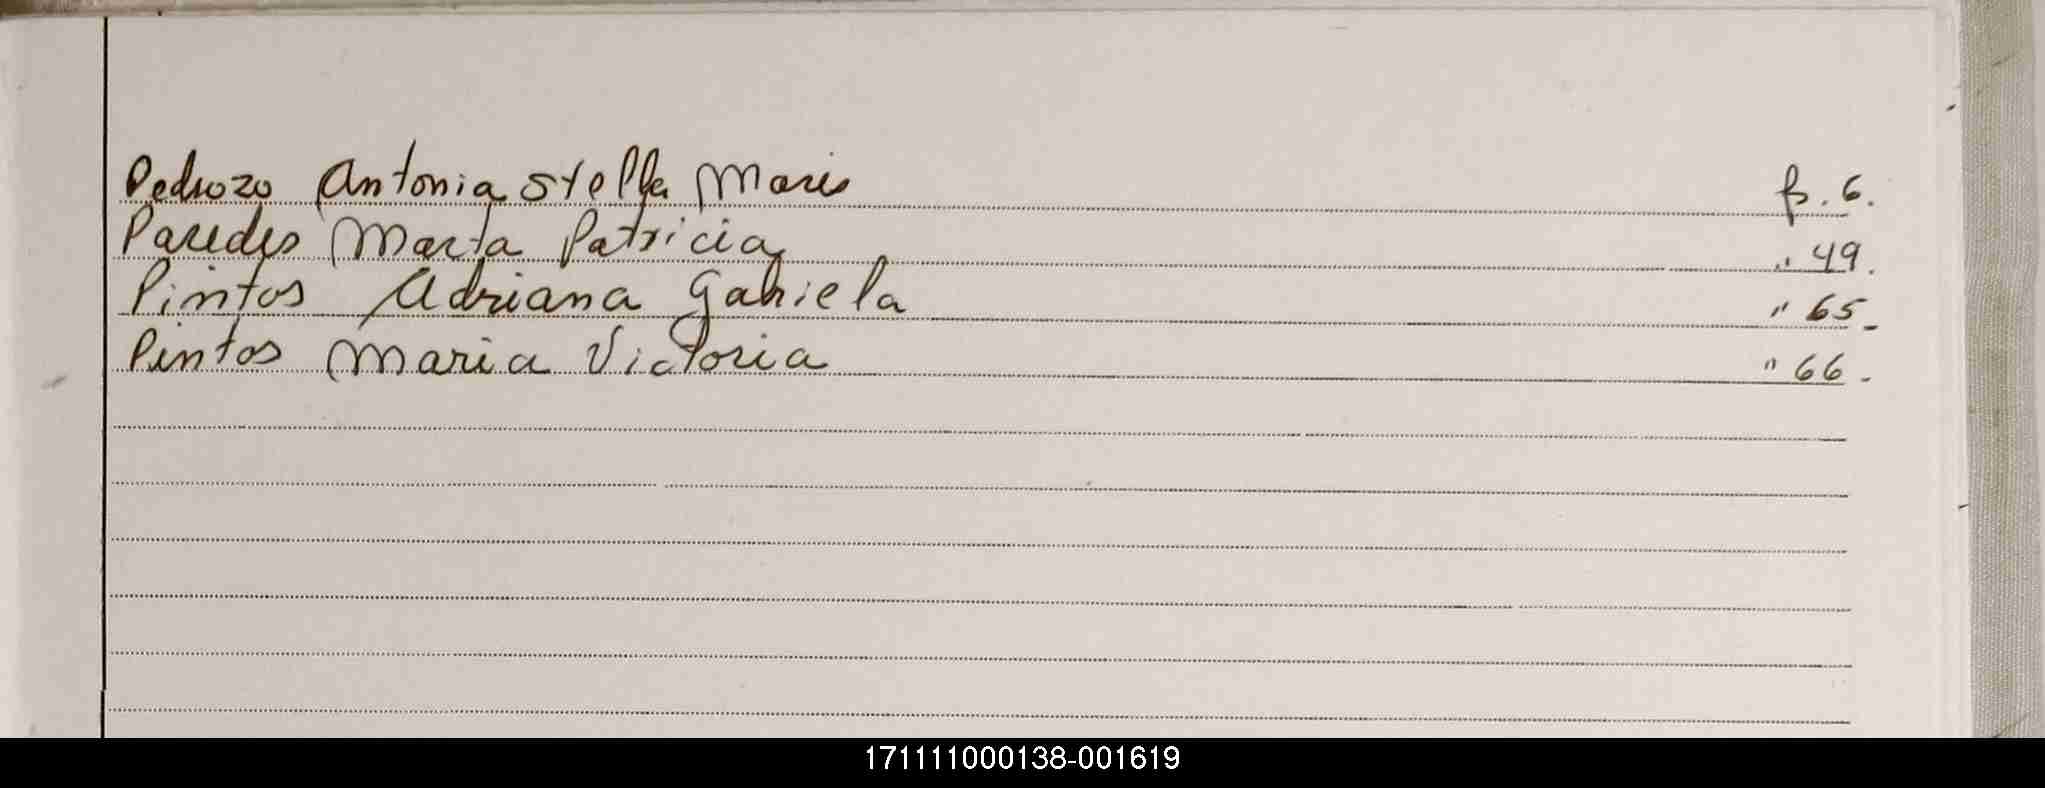 Pedrozo Antonia Stella Maris f. 6.
Paredes Marta Patricia " 49.
Pintos Adriana Gabriela " 65-
Pintos Maria Victoria " 66-
171111000138-001619